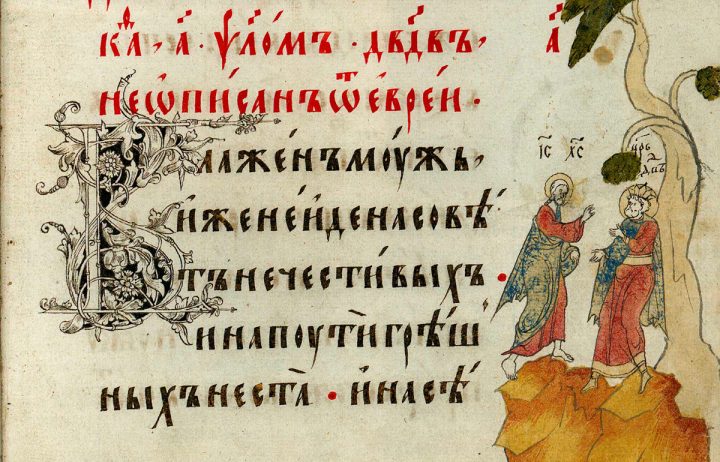 каⷴ, а҃ · ѱ҃ломъ · дв҃двъ, а҃
неѡписанъ ѿ еврей ·
Блаженъ моужь,
иже не иде на совѣ
тъ нечестивыхъ ·
и на поути грѣш
ныхъ не ста · и на сѣ
іс҃ хс҃
црь дв҃дъ